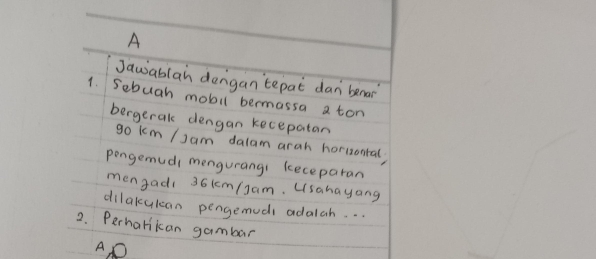 A
Jawablah dengan tepat dan benar
1. Sebuah mobil bermassa 2 ton
bergerak dengan kecepatan
90 km/jam dalam arah horizontal,
pengemudi mengurangi kecepatan
mengadi 36 km/jam. Usaha yang
dilakukan pengemudi adalah ...
2. Perhatikan gambar
A